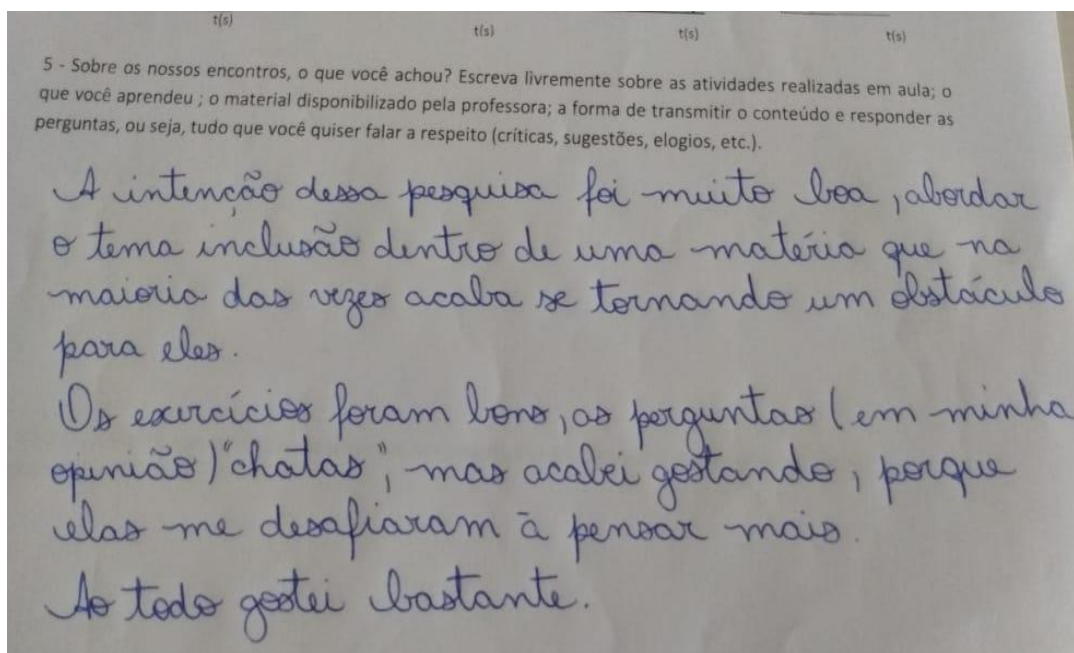 t(s)
t(s)
t(s)
t(s)
5 - Sobre os nossos encontros, o que você achou? Escreva livremente sobre as atividades realizadas em aula; o
que você aprendeu ; o material disponibilizado pela professora; a forma de transmitir o conteúdo e responder as
perguntas, ou seja, tudo que você quiser falar a respeito (críticas, sugestões, elogios, etc.).
A intenção dessa pesquisa foi muito boa, abordar
o tema inclusão dentro de uma matéria que na
maioria das vezes acaba se tornando um obstáculo
para eles.
Os exercícios foram bons, as perguntas (em minha
opinião) "chatas", mas acabei gostando, porque
elas me desafiaram à pensar mais.
Ao todo gostei bastante.